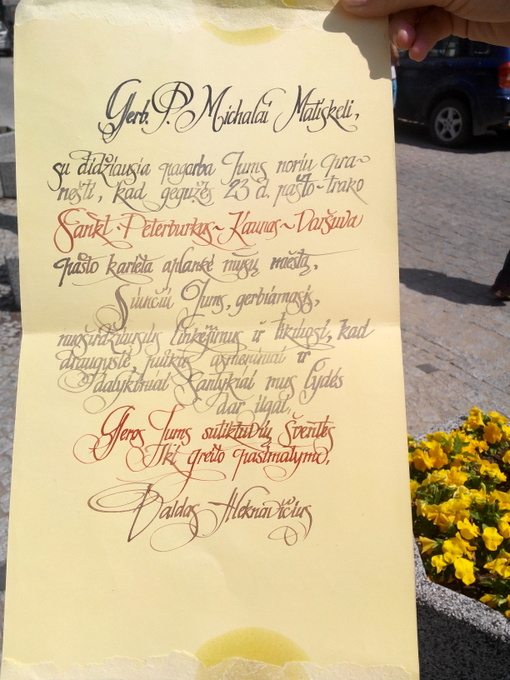 Gerb. P. Michalai Matiskeli,
su didžiausia pagarba Jums noriu pra~
nešti, kad gegužės 23 d. pašto~trako
Sankt.Peterburkas~Kaunas~Varšuva
pašto karieta aplankė mūsų miestą,
Siunčiu Jums, gerbiamasis,
nuoširdžiausius linkėjimus ir tikiuosi, kad
draugystė, puikūs asmeniniai ir
dalykiniai santykiai mus lydės
dar ilgai.
Geros Jums sutiktuvių šventės
Iki greito pasimatymo,
Valdas Aleknavičius